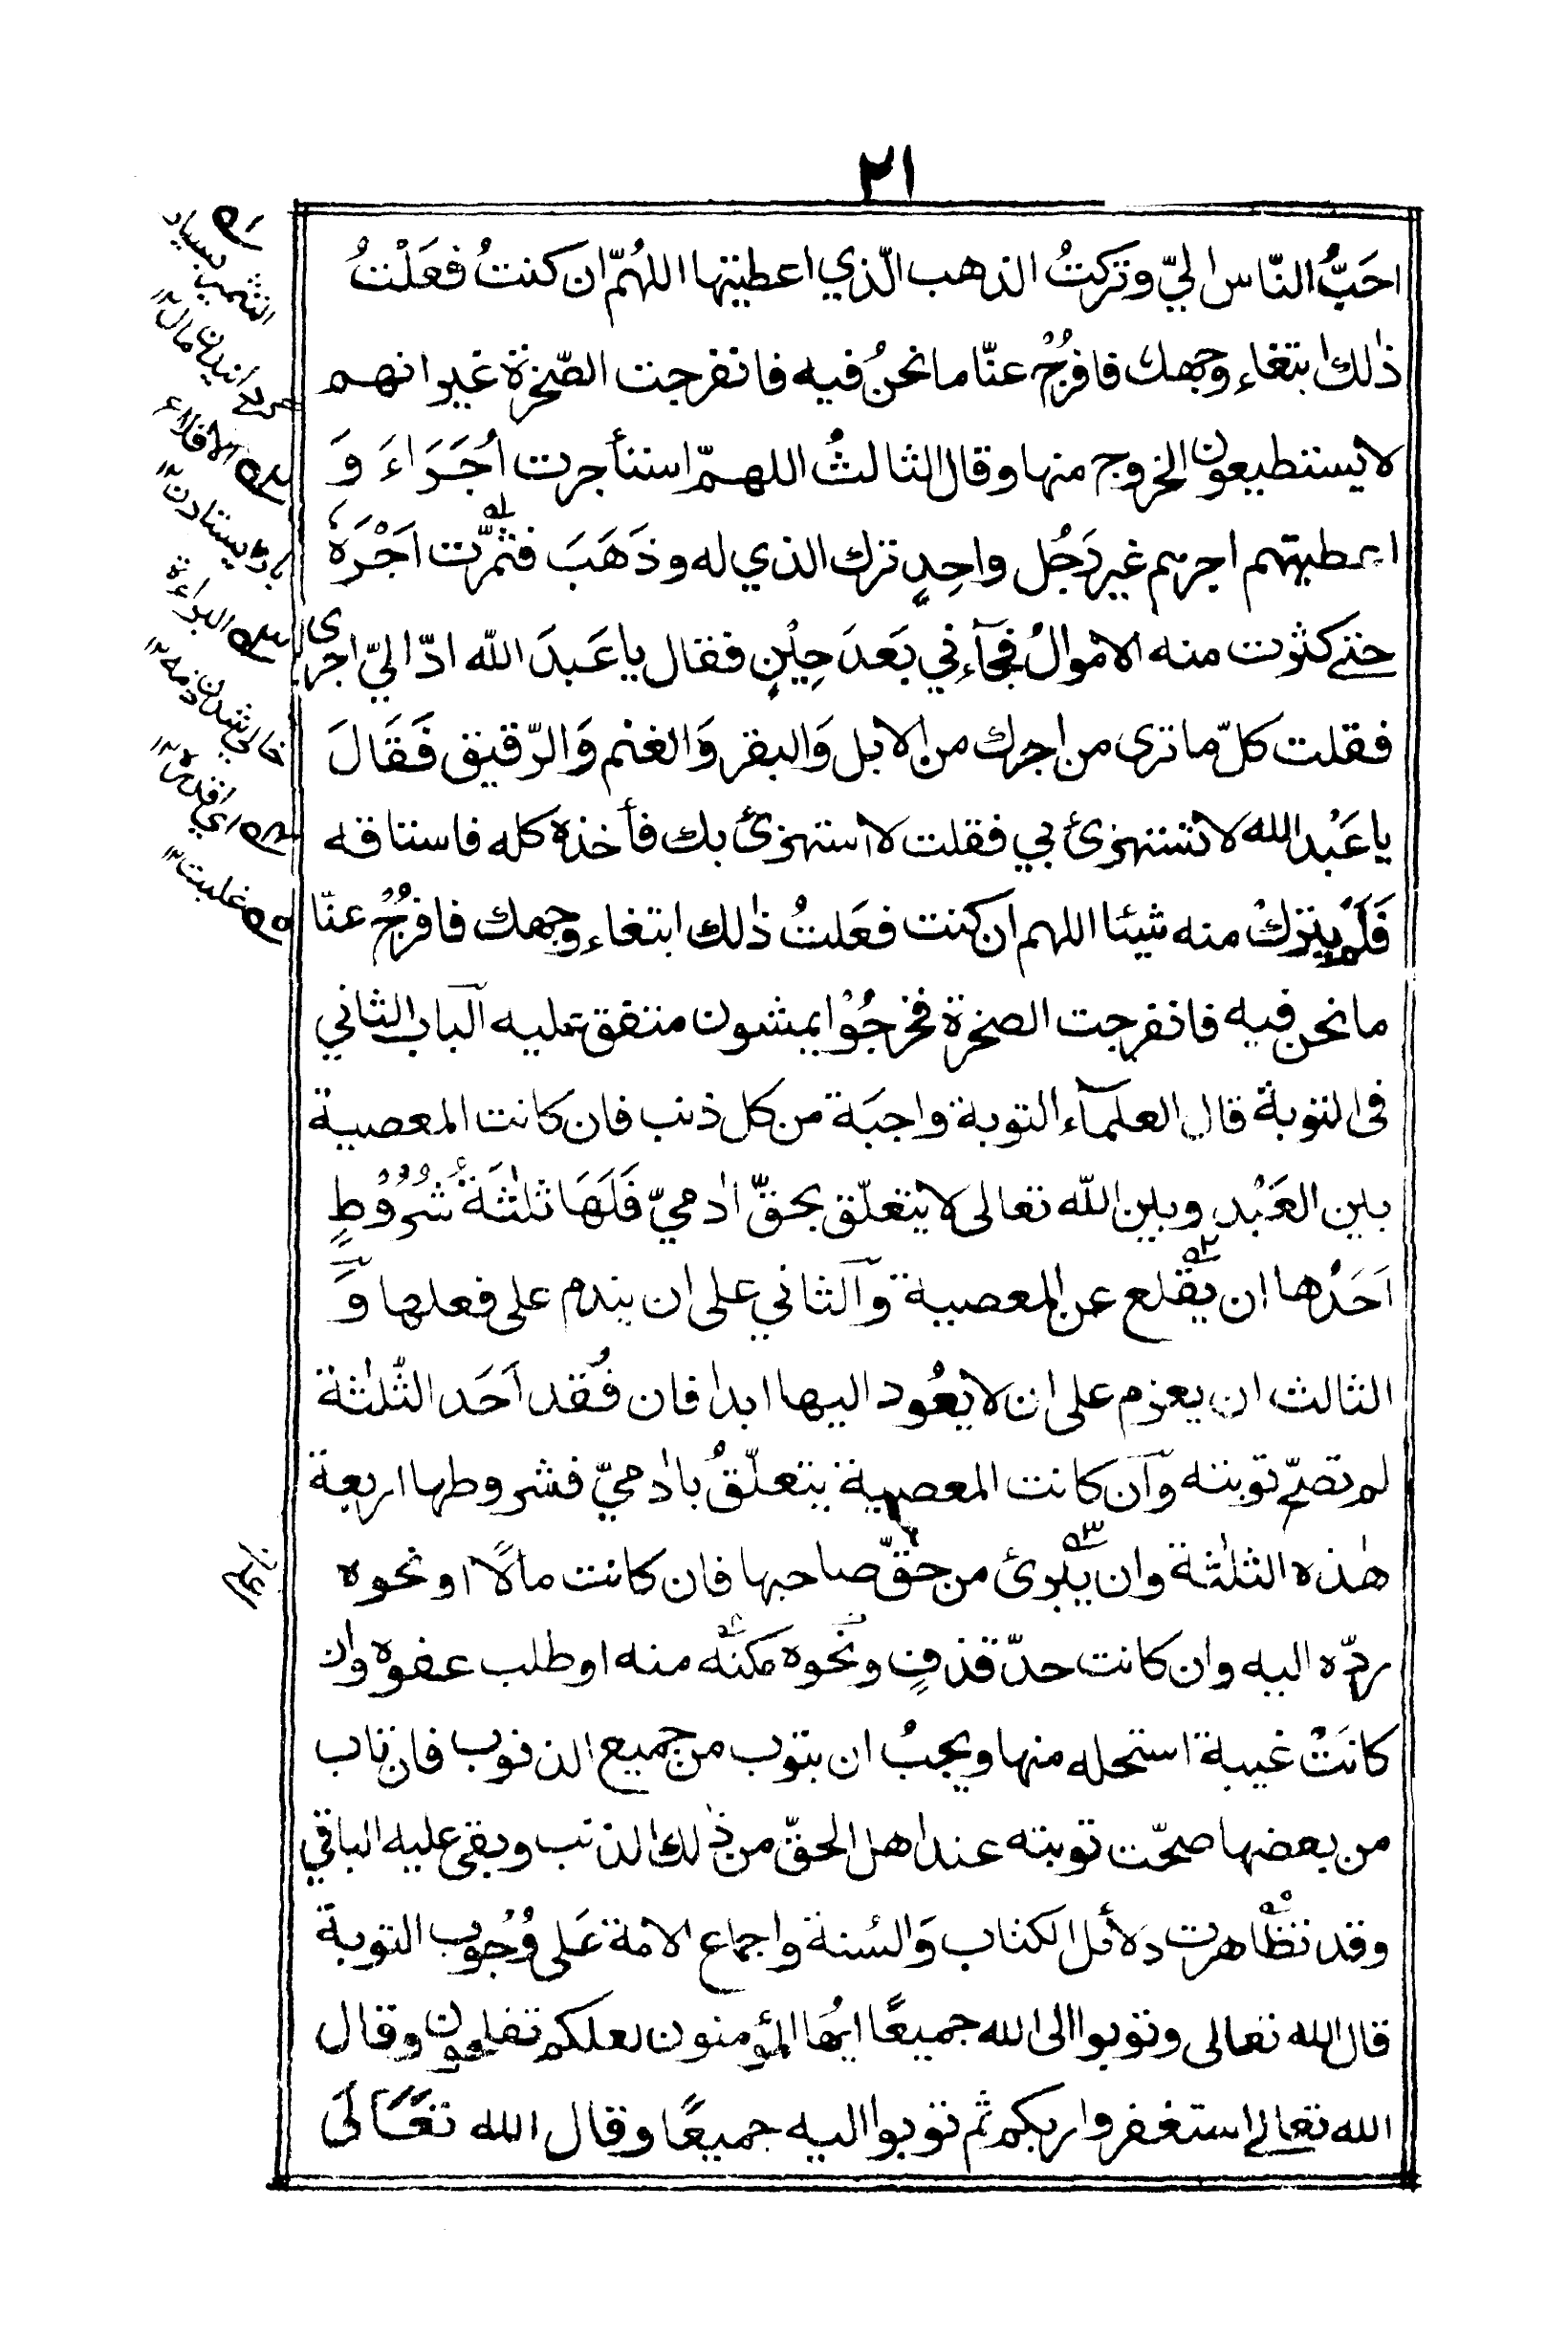 ٢١
احَبُّ النّاس اليّ وتركتُ الذهب الّذي اعطيتها اللهُمّ ان كنتُ فعَلْتُ
ذٰلك ابتغاء وجهك فافرُجْ عنّا ما نحنُ فيه فانفرجت الصّخرة غير انهم
لا يستطيعون الخروج منها وقال الثالثُ اللهمّ استأجرت اُجَرَاءَ وَ
اعطيتهم اجرهم غير رَجُل واحِدٍ ترك الذي له وذَهَبَ فثمّرت اَجْرَهٗ
حتے كثرت منه الاموالُ فجآءني بَعدَ حِيْنٍ فقال يا عَبدَ اللّه ادّ اليّ اجرى
فقلت كلّ ما ترى من اجرك من الابل وَالبقر وَالغنم وَالرّقيق فَقَالَ
يا عَبْد الله لا تستهزئ بي فقلت لا استهزئ بك فأخذه كله فاستاقه
فَلَمْ يترك منه شيئا اللهم ان كنت فعَلتُ ذٰلك ابتغاء وجهك فافرُجْ عنّا
ما نحن فيه فانفرجت الصخرة فخرجُوْا يمشون متفق عليه الباب الثاني
فى التوبة قال العلمآء التوبة واجبَة من كل ذنب فان كانت المعصية
بين العَبْد وبين اللّه تعالى لا يتعلّق بحقّ اٰدميّ فَلَهَا ثلٰثَة شُرُوْطٍ
اَحَدُها ان يقلع عن المعصية وَالثاني على ان يندم على فعلها وَ
الثالث ان يعزم على ان لا يعُود اليها ابدا فان فُقد اَحَد الثّلٰثة
لم تصحّ توبته وَان كانت المعصية يتعلّقُ باٰدميّ فشروطها اربعة
هٰذه الثلٰثة وان يبرئ من حقّ صاحبها فان كانت مالًا او نحوه
ردّه اليه وان كانت حدّ قذفٍ ونحوه مكنه منه او طلب عفوه وان
كانَتْ غيبة استحله منها ويجبُ ان يتوب من جميع الذنوب فان تاب
من بعضها صحّت توبته عند اهل الحقّ من ذٰلك الذنب وبقى عليه الباقي
وقد تظاهرت دلائل الكتاب وَالسُنة واجماع الامة عَلى وُجُوب التوبة
قال الله تعالى وتوبوا الى الله جميعًا ايُّها المؤمنون لعلكم تفلحون وقال
الله تعالے استغفروا ربكم ثم توبوا اليه جميعًا وقال الله تعَالىٰ
التثمير بسيار
گردانيدن مال ١٢
الاقلاع
باز ايستادن ١٢
البراءة
خالي شدن ذمه ١٢
اي اقدره ١٢
غلبت ١٢